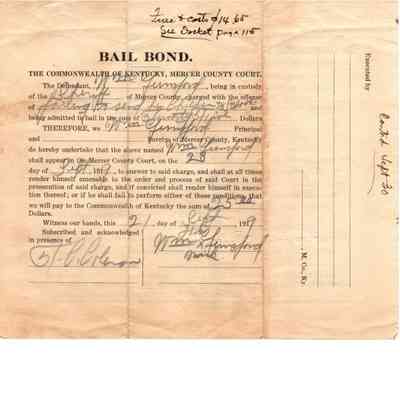 Fine & costs $14.65
See Docket page 115
BAIL BOND.
THE COMMONWEALTH OF KENTUCKY, MERCER COUNTY COURT.
The Defendant, Wm Lunsford, being in custody
of the Sheriff of Mercer County, charged with the offense
of failing to send his children to School and
being admitted to bail in the sum of Dollars
THEREFORE, we Wm Lunsford Principal
and Surety of Mercer County, Kentucky
do hereby undertake that the above named Wm Lunsford
shall appear in the Mercer County Court, on the 23
day of Sept 1919, to answer to said charge, and shall at all times
render himself amenable to the order and process of said Court in the
prosecution of said charge, and if convicted shall render himself in execu-
tion thereof; or if he shall fail to perform either of these conditions, that
we will pay to the Commonwealth of Kentucky the sum of 25.00
Dollars.
Witness our hands, this 21 day of Sept 1919
Subscribed and acknowledged
in presence of
his
Wm X Lunsford
mark
Coleman
Executed by
M. Co., Ky.
Sept 30